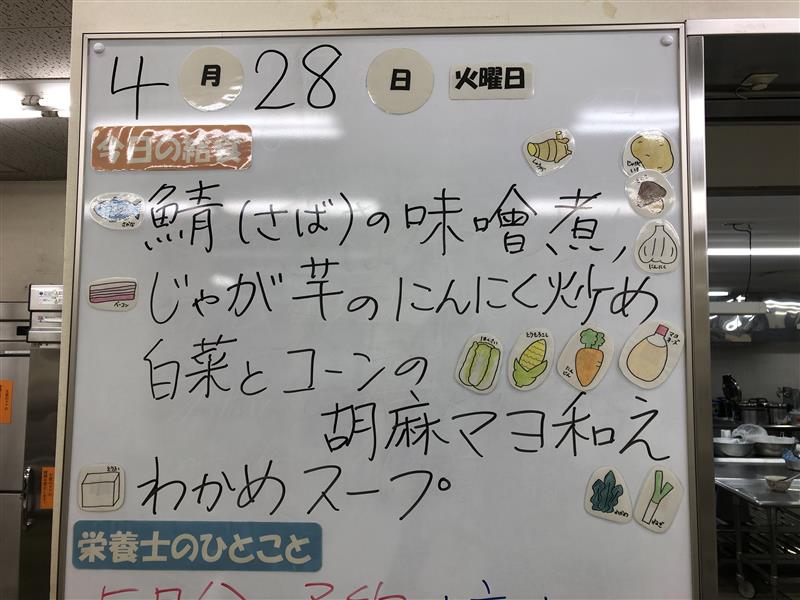 4月28日 火曜日
今日の給食
しょうが
じゃがいも
さかな
鯖(さば)の味噌煮,
にんにく
ベーコン
じゃが芋のにんにく炒め
白菜とコーンの
はくさい
とうもろこし
にんじん
マヨネーズ
胡麻マヨ和え
とうふ
わかめスープ
わかめ
ねぎ
栄養士のひとこと